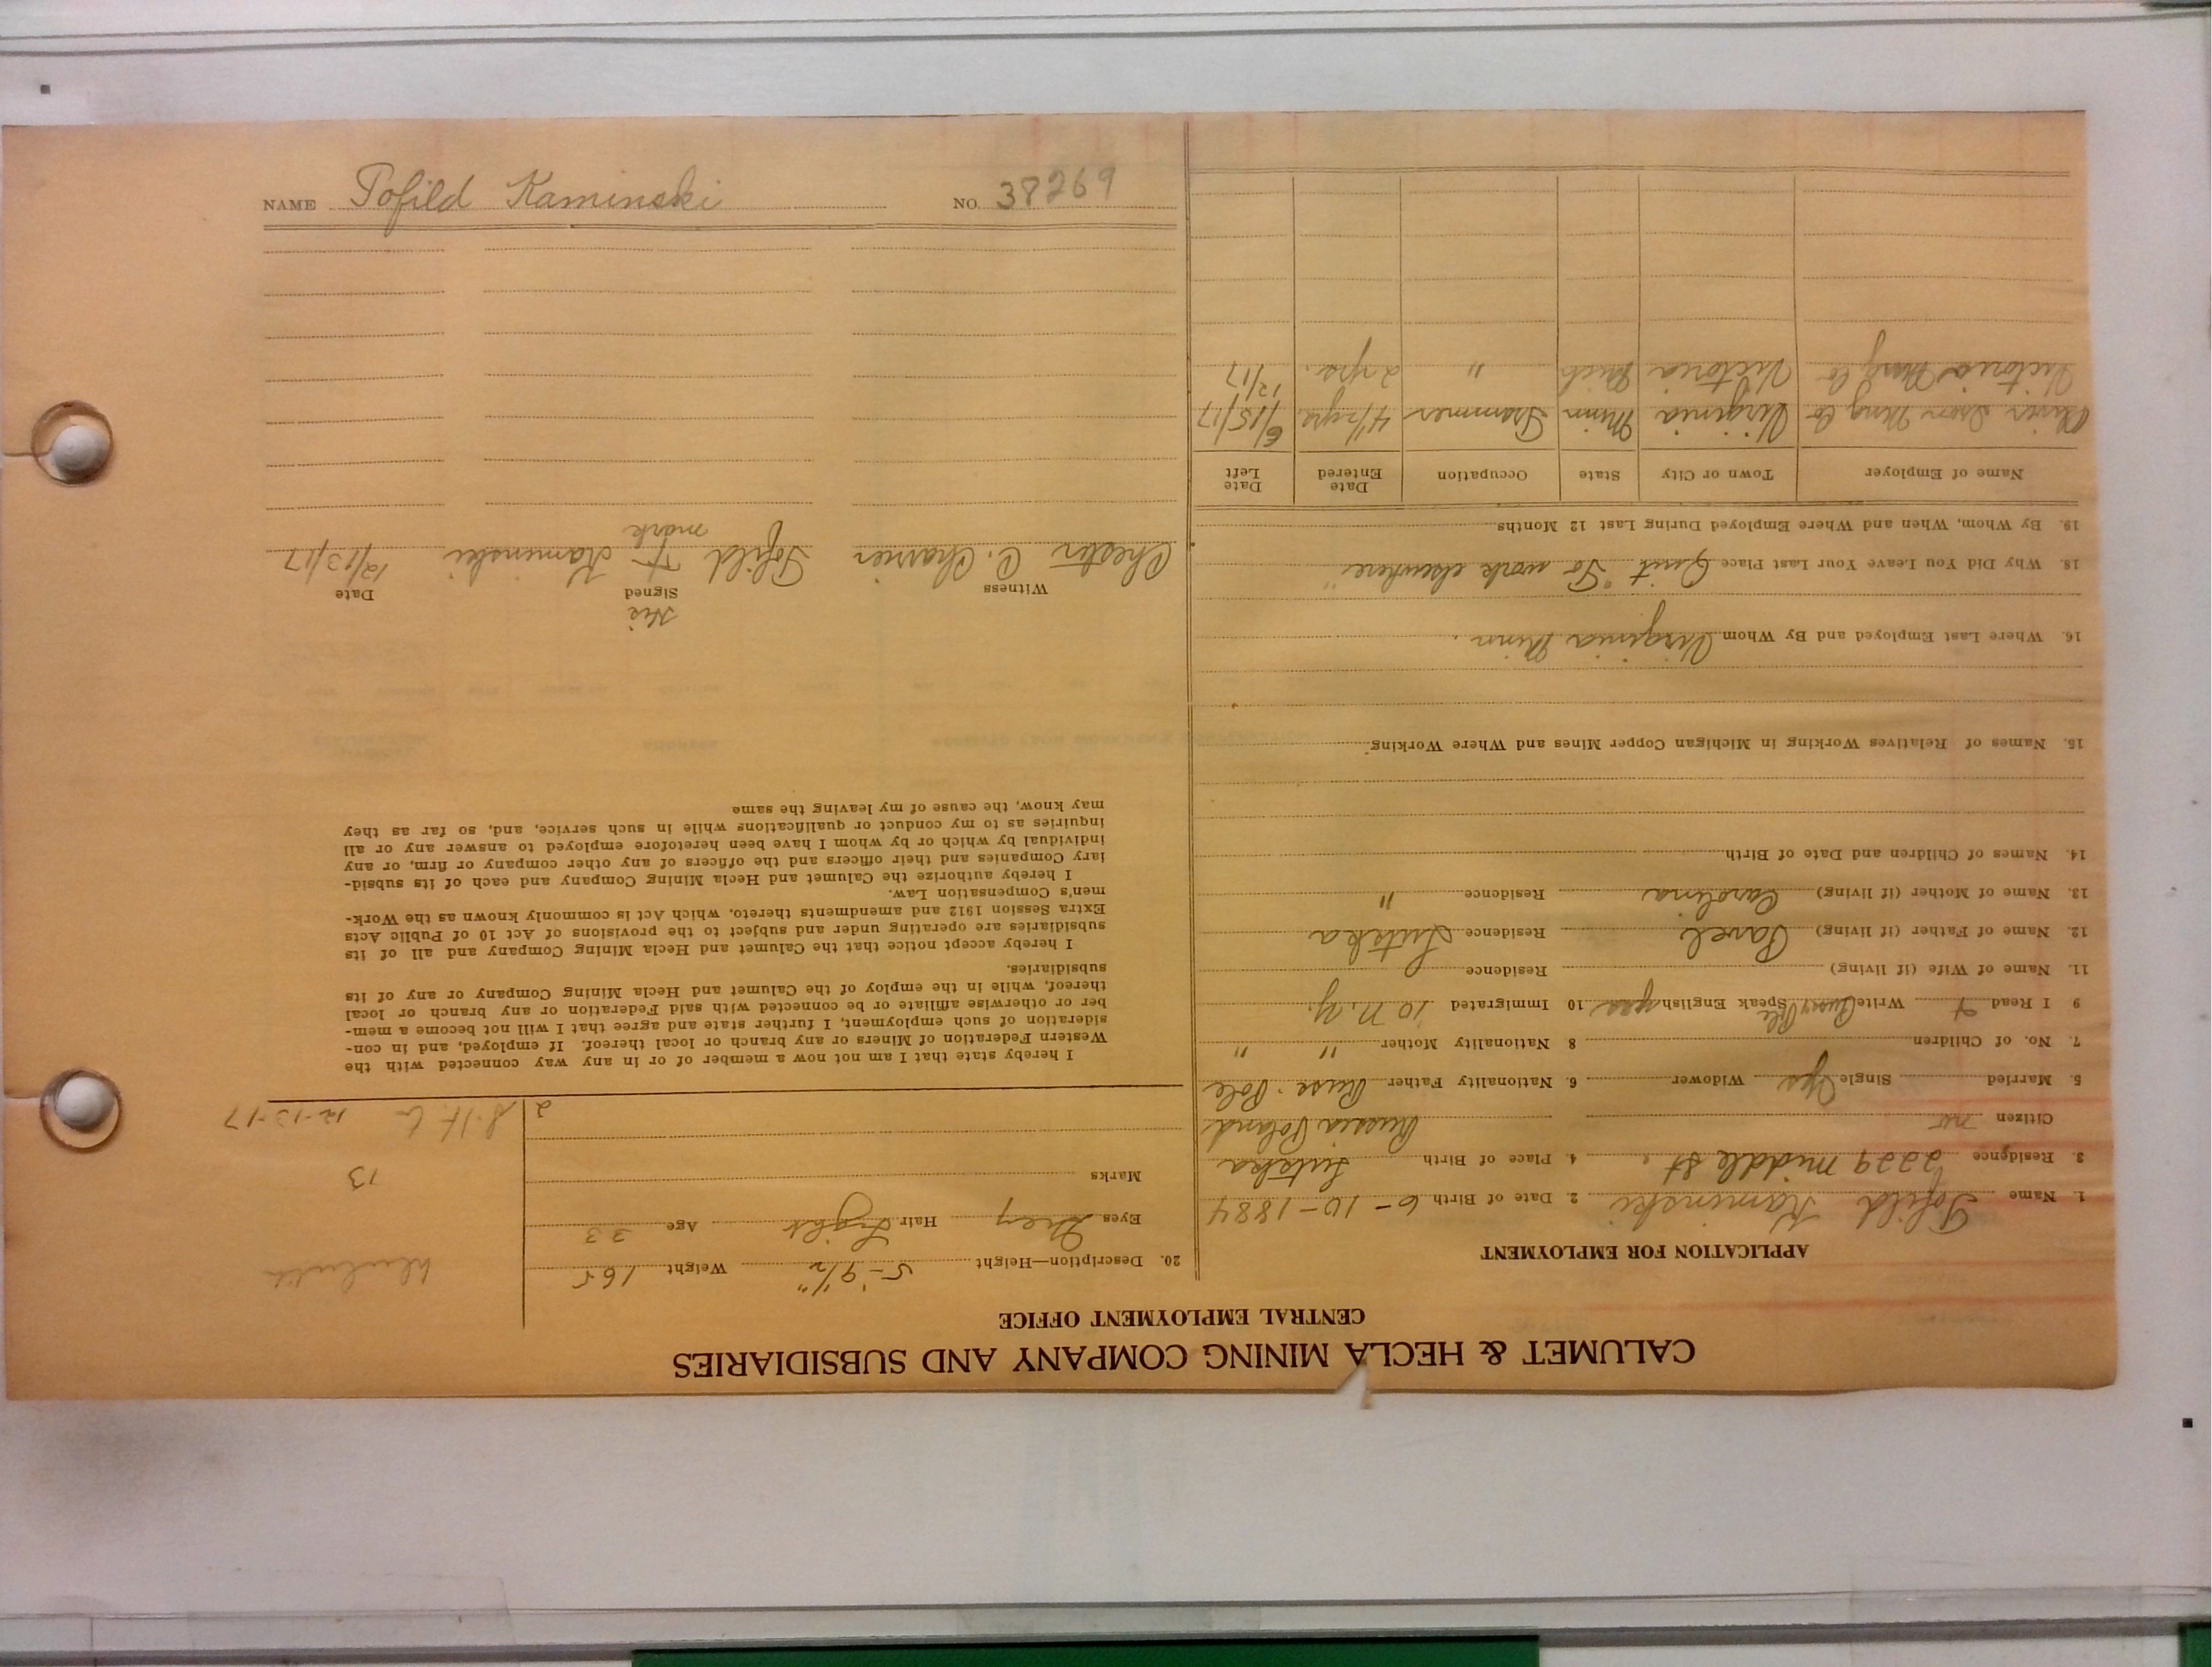 CALUMET & HECLA MINING COMPANY AND SUBSIDIARIES
CENTRAL EMPLOYMENT OFFICE
APPLICATION FOR EMPLOYMENT
1. Name Tofild Kaminski 2. Date of Birth 6-10-1884
3. Residence 2229 middle st. 4. Place of Birth Lutska
Citizen no Russia Poland
5. Married Single Yes Widower 6. Nationality Father Russ. Pole
7. No. of Children 8 Nationality Mother " "
9 I Read Write Speak English yes 10 Immigrated 10 N.Y.
11. Name of Wife (if living) Residence
12. Name of Father (if living) Pavel Residence Lutska
13. Name of Mother (if living) Carolina Residence "
14. Names of Children and Date of Birth
15. Names of Relatives Working in Michigan Copper Mines and Where Working
16. Where Last Employed and By Whom Virginia Minn.
18. Why Did You Leave Your Last Place Quit "To work elsewhere"
19. By Whom, When and Where Employed During Last 12 Months
Name of Employer Town or City State Occupation Date Entered Date Left
Oliver Iron Mng Co Virginia Minn Trammer 4 1/2 yrs 6/15/17
Victoria Mng Co Victoria Mich " 2 yrs. 12/17
20. Description—Height 5'-9 1/2" Weight 165
Eyes Grey Hair Light Age 33
Marks
13
2
12-13-17
I hereby state that I am not now a member of or in any way connected with the
Western Federation of Miners or any branch or local thereof. If employed, and in con-
sideration of such employment, I further state and agree that I will not become a mem-
ber or otherwise affiliate or be connected with said Federation or any branch or local
thereof, while in the employ of the Calumet and Hecla Mining Company or any of its
subsidiaries.
I hereby accept notice that the Calumet and Hecla Mining Company and all of its
subsidiaries are operating under and subject to the provisions of Act 10 of Public Acts
Extra Session 1912 and amendments thereto, which Act is commonly known as the Work-
men's Compensation Law.
I hereby authorize the Calumet and Hecla Mining Company and each of its subsid-
iary Companies and their officers and the officers of any other company or firm, or any
individual by which or by whom I have been heretofore employed to answer any or all
inquiries as to my conduct or qualifications while in such service, and, so far as they
may know, the cause of my leaving the same
His
Witness Signed Date
Chester C. Charrier Tofild + Kaminski 12/13/17
mark
NAME Tofild Kaminski NO. 38269